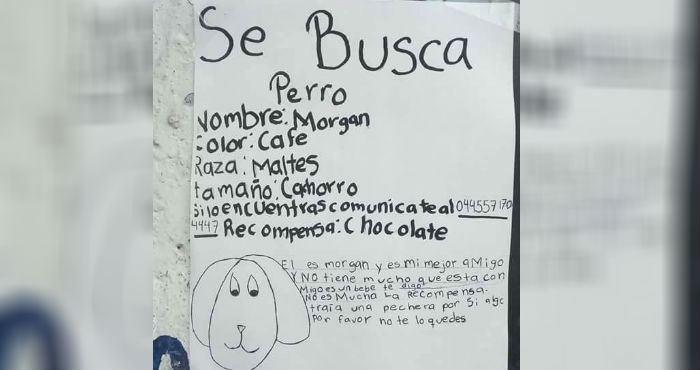 Se Busca
Perro
Nombre: Morgan
Color: Cafe
Raza: Maltes
tamaño: Cachorro
Si lo encuentras comunicate al 044557170
4447 Recompensa: Chocolate
El es morgan y es mi mejor aMigo
Y NO tiene mucho que esta con
Migo es un bebe te digo
NO es Mucha La Recompensa.
traía una pechera por Si algo
Por favor no te lo quedes